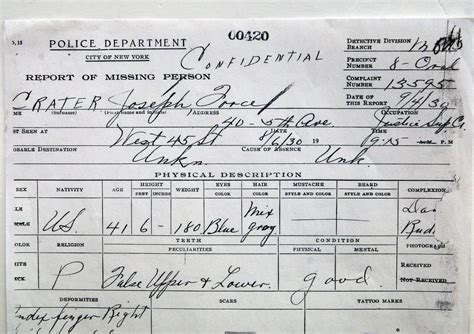 00420
D. 13 POLICE DEPARTMENT DETECTIVE DIVISION
CITY OF NEW YORK BRANCH
Confidential
PRECINCT NUMBER 8-Oral
REPORT OF MISSING PERSON COMPLAINT NUMBER 13595
CRATER Joseph Force DATE OF THIS REPORT 9/4/30
ME (Surname) (First name and initials) ADDRESS OCCUPATION
40-5th Ave Justice Sup. Ct
ST SEEN AT West 45 St 8/6/30 19 9:15 P.M
OBABLE DESTINATION Unkn. CAUSE OF ABSENCE Unk.
PHYSICAL DESCRIPTION
SEX NATIVITY AGE HEIGHT WEIGHT EYES HAIR MUSTACHE BEARD COMPLEXION
FEET INCHES COLOR COLOR STYLE AND COLOR STYLE AND COLOR
U.S. 41 6 - 180 Blue Mix gray
COLOR RELIGION TEETH CONDITION PHOTOGRAPH
PECULIARITIES
P False Upper & Lower. good. RECEIVED
NOT RECEIVED
DEFORMITIES SCARS TATTOO MARKS
Index finger Right